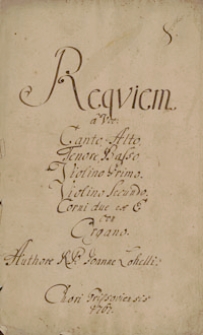 Requiem.
a Voc:
Canto, Alto,
Tenore, Basso
Violino Primo.
Violino Secundo.
Cornu due ex
con
Organo.
Authore R: P: Joanne
Chori